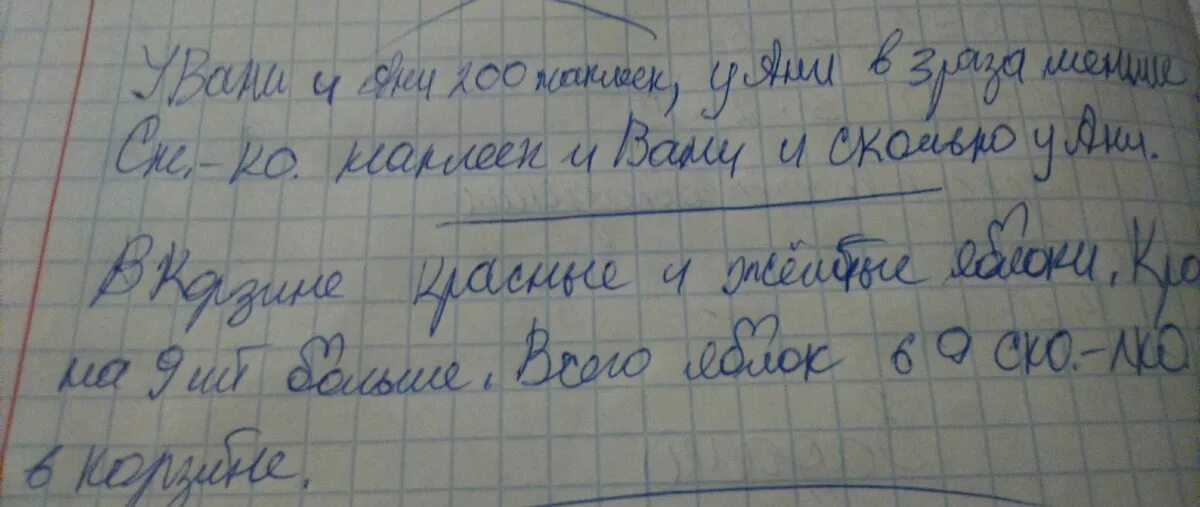 У Вани и Ани 200 наклеек, у Ани в 3 раза меньше
Ск.-ко. наклеек и Вани и сколько у Ани.
В Корзине красные и жёлтые яблоки. Кра
на 9 шт больше. Всего яблок 69 ско.-лко
в корзине.